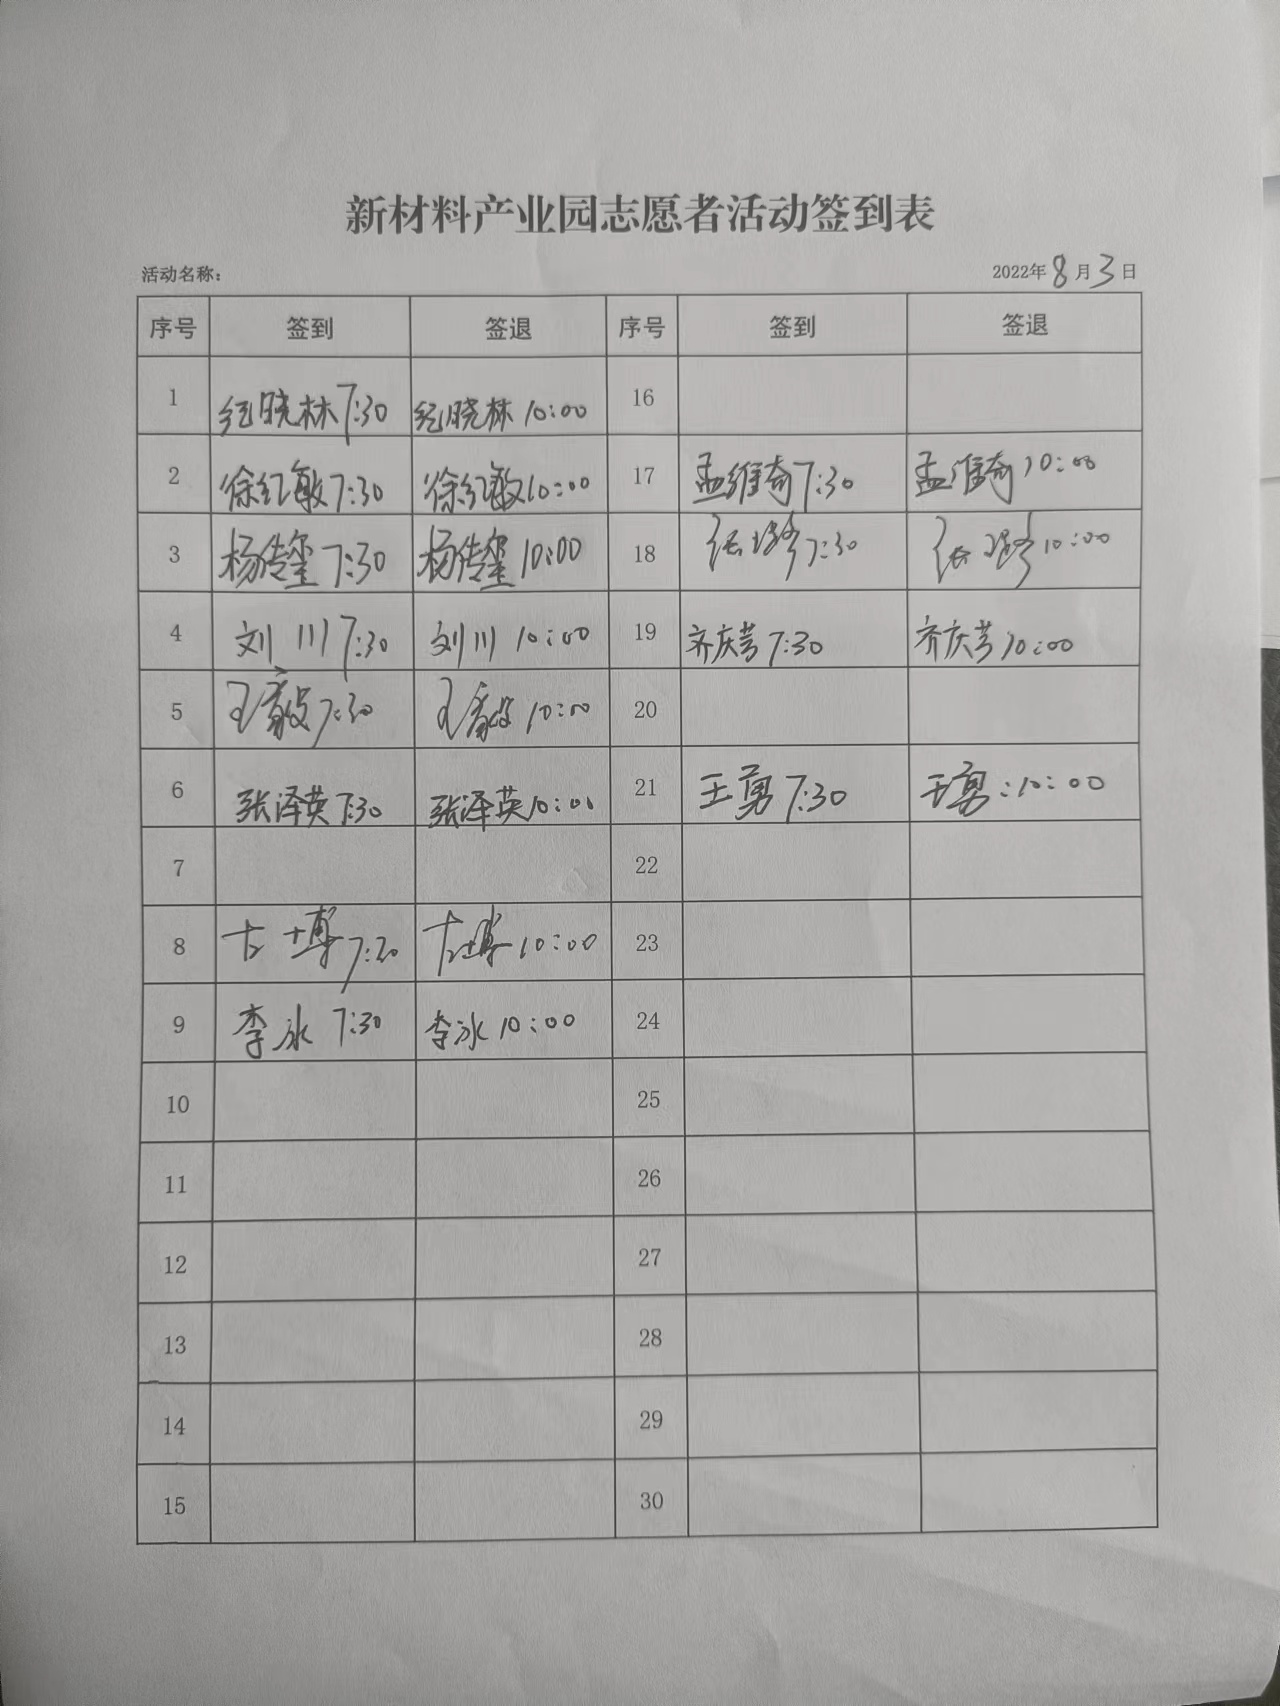 新材料产业园志愿者活动签到表
活动名称: 2022年8月3日
序号 签到 签退 序号 签到 签退
1 纪晓林 7:30 纪晓林 10:00 16
2 徐红敏 7:30 徐红敏 10:00 17 孟维奇 7:30 孟维奇 10:00
3 杨传玺 7:30 杨传玺 10:00 18 张 7:30 张 10:00
4 刘川 7:30 刘川 10:00 19 齐庆芳 7:30 齐庆芳 10:00
5 王毅 7:30 王毅 10:00 20
6 张泽英 7:30 张泽英 10:00 21 王勇 7:30 王勇:10:00
7 22
8 博 7:30 博 10:00 23
9 李冰 7:30 李冰 10:00 24
10 25
11 26
12 27
13 28
14 29
15 30